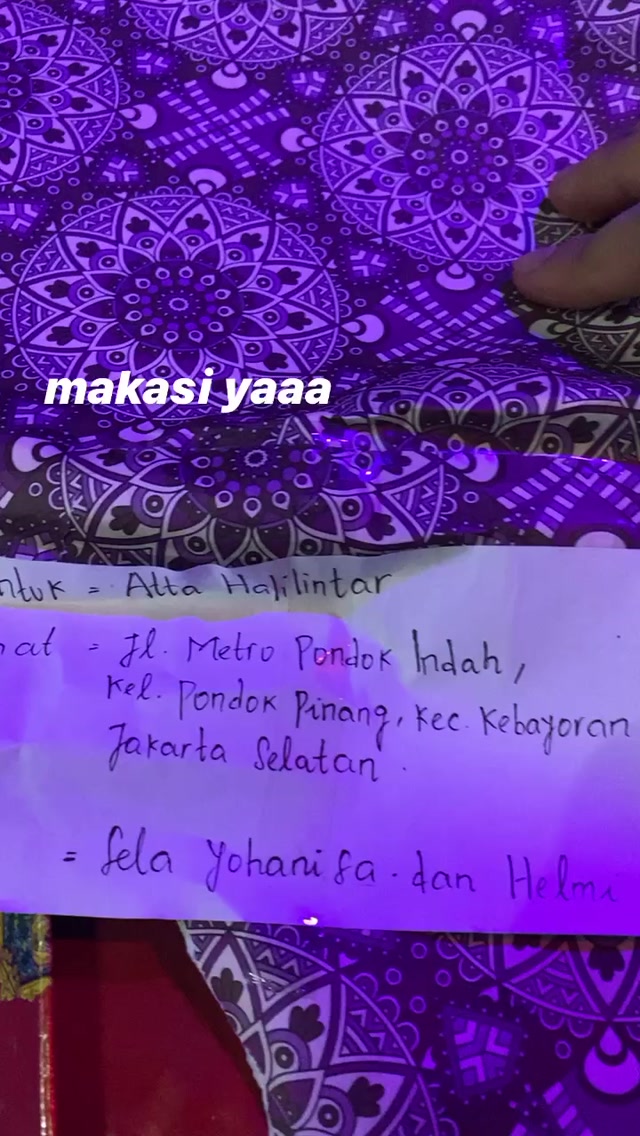 makasi yaaa
ntuk = Atta Halilintar
at = Jl. Metro Pondok Indah,
Kel. Pondok Pinang, Kec. Kebayoran
Jakarta Selatan.
= Sela Yohanifa. dan Helmi